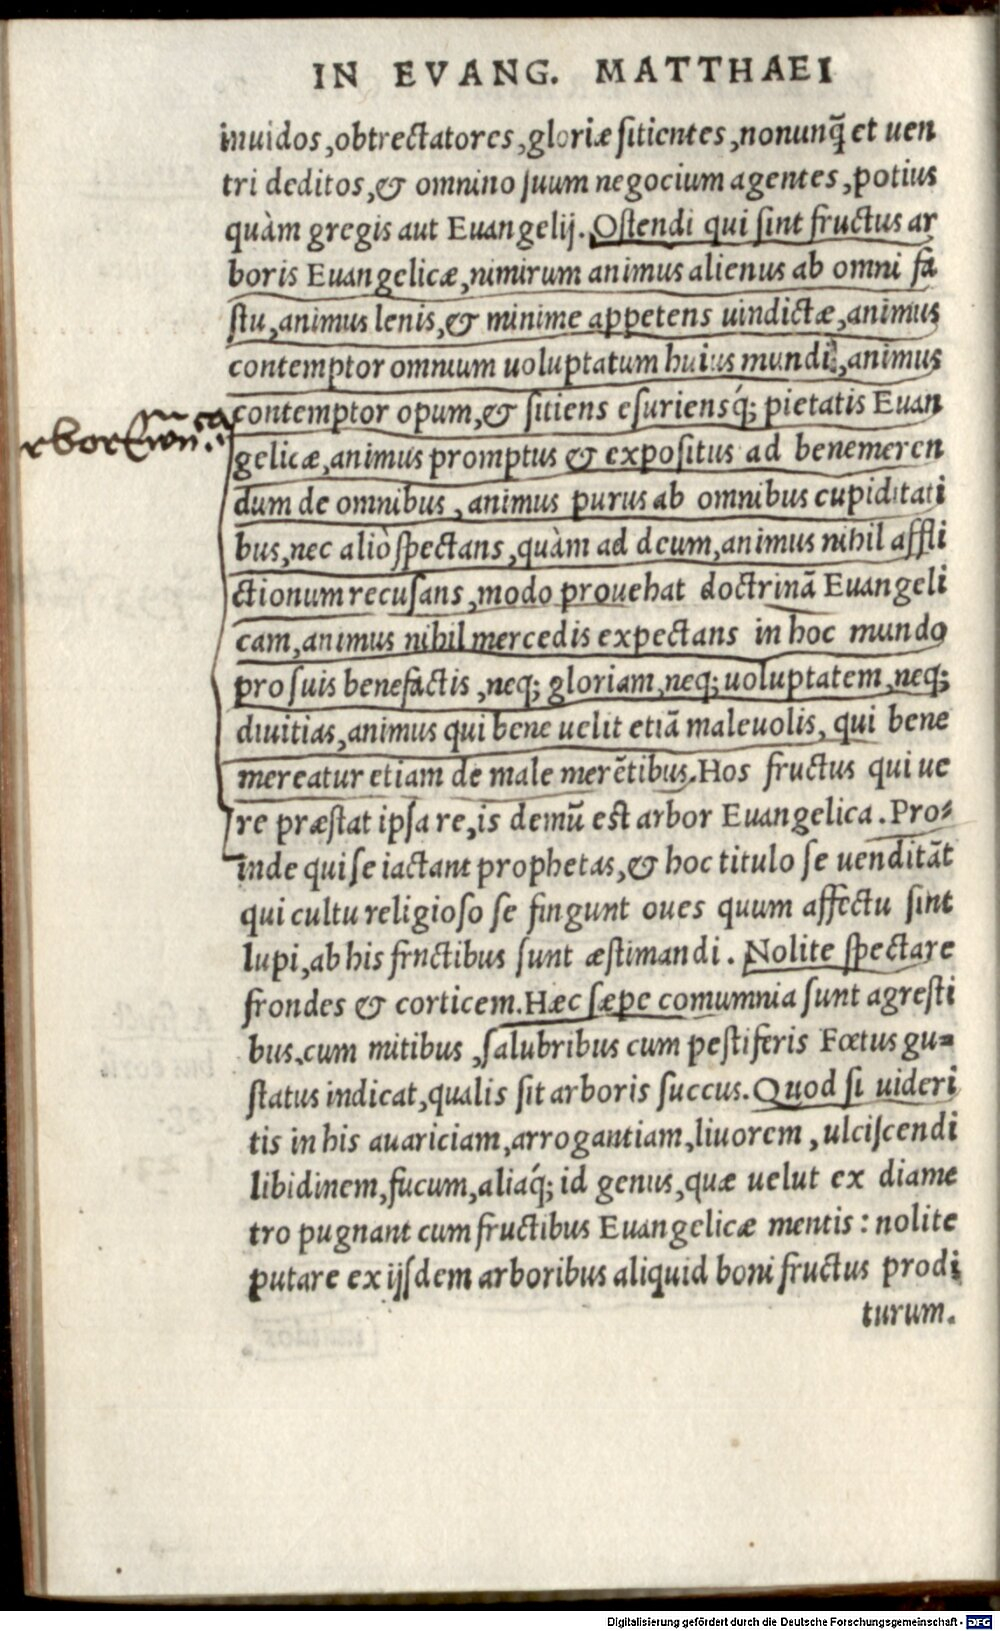 IN EVANG. MATTHAEI
inuidos, obtrectatores, gloriæ sitientes, nonunq̃ et uen
tri deditos, & omnino suum negocium agentes, potius
quàm gregis aut Euangelij. Ostendi qui sint fructus ar
boris Euangelicæ, nimirum animus alienus ab omni fa
stu, animus lenis, & minime appetens uindictæ, animus
contemptor omnium uoluptatum huius mundi, animus
contemptor opum, & sitiens esuriensq́; pietatis Euan
gelicæ, animus promptus & expositus ad benemeren
dum de omnibus, animus purus ab omnibus cupiditati
bus, nec aliò spectans, quàm ad deum, animus nihil affli
ctionum recusans, modo prouehat doctrinā Euangeli
cam, animus nihil mercedis expectans in hoc mundo
pro suis benefactis, neq; gloriam, neq; uoluptatem, neq;
diuitias, animus qui bene uelit etiā maleuolis, qui bene
mereatur etiam de male merētibus. Hos fructus qui ue
re præstat ipsa re, is demū est arbor Euangelica. Pro-
inde qui se iactant prophetas, & hoc titulo se uenditāt
qui cultu religioso se fingunt oues quum affectu sint
lupi, ab his frnctibus sunt æstimandi. Nolite spectare
frondes & corticem. Hæc sæpe comumnia sunt agresti
bus, cum mitibus, salubribus cum pestiferis Fœtus gu-
status indicat, qualis sit arboris succus. Quod si uideri
tis in his auariciam, arrogantiam, liuorem, ulciscendi
libidinem, fucum, aliaq́; id genus, quæ uelut ex diame
tro pugnant cum fructibus Euangelicæ mentis: nolite
putare ex ijsdem arboribus aliquid boni fructus prodi
turum.
Digitalisierung gefördert durch die Deutsche Forschungsgemeinschaft - DFG